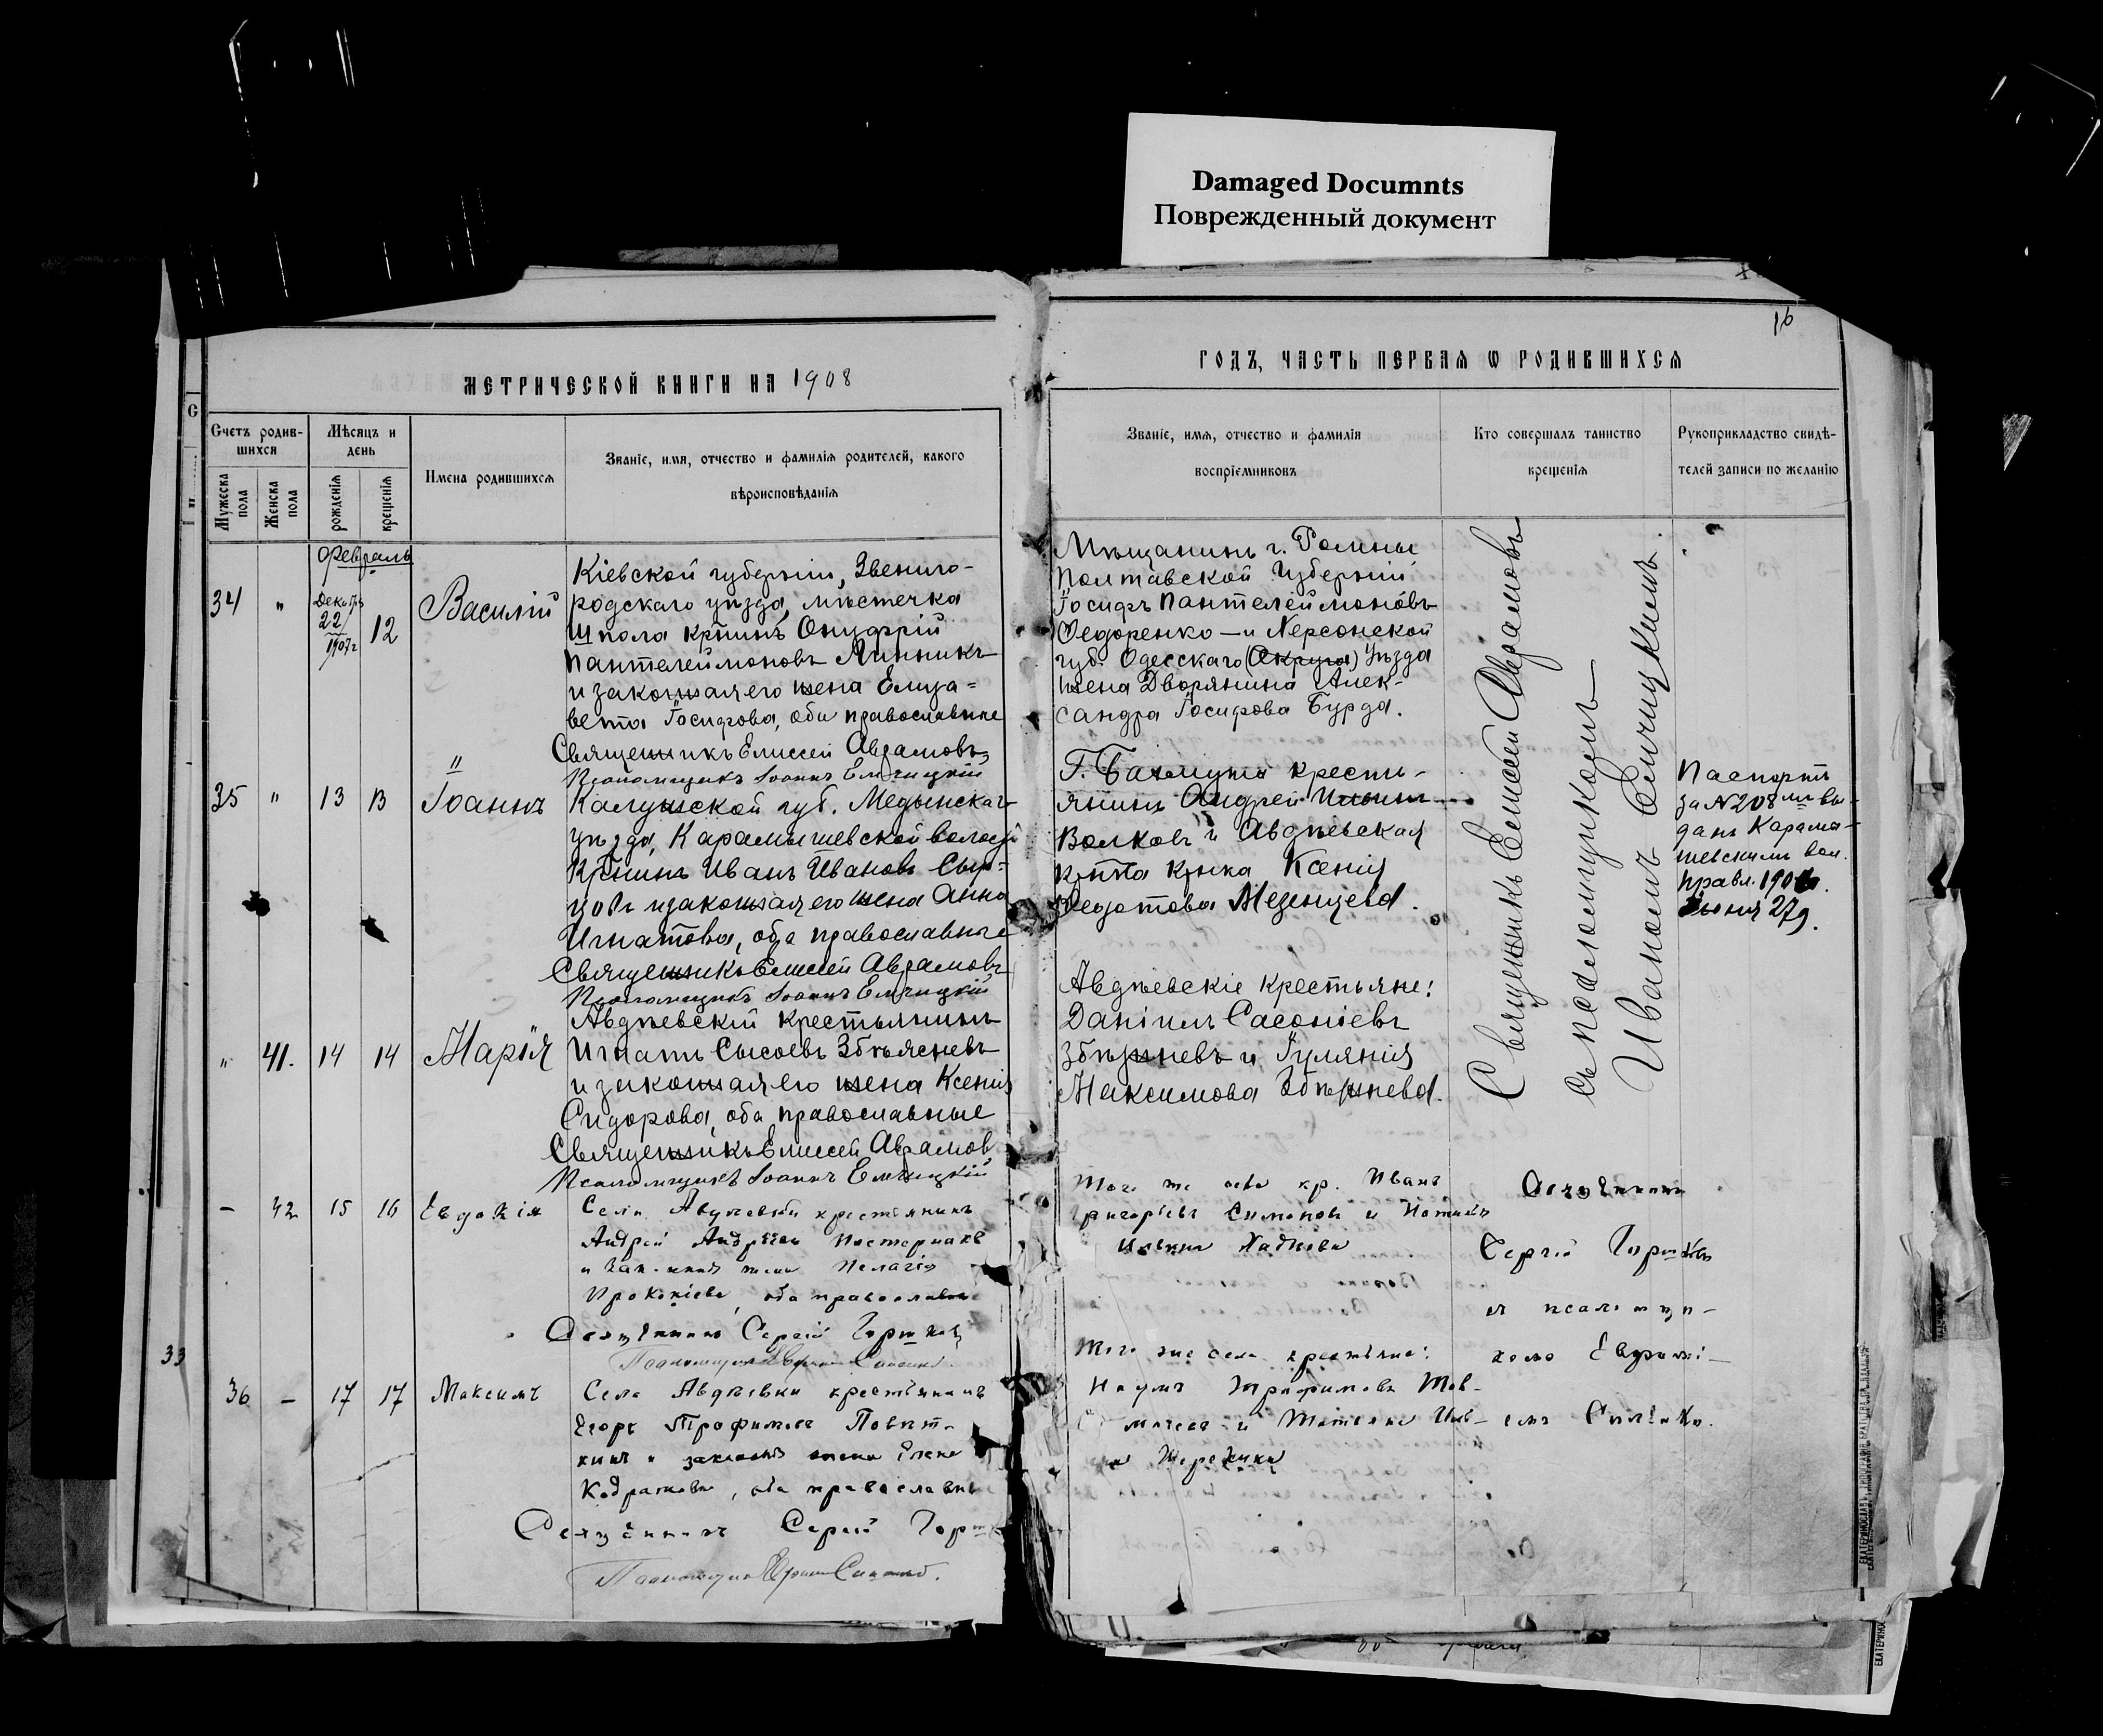 Damaged Documnts
Поврежденный документ
16
МЕТРИЧЕСКОЙ КНИГИ НА 1908
ГОДЪ, ЧАСТЬ ПЕРВАЯ Ѡ РОДИВШИХСЯ
Счетъ родив-
шихся
Мужеска пола
Женска пола
Мѣсяцъ и
день
рожденія
крещенія
Имена родившихся
Званіе, имя, отчество и фамилія родителей, какого
вѣроисповѣданія
Званіе, имя, отчество и фамилія
воспріемниковъ
Кто совершалъ таинство
крещенія
Рукоприкладство свидѣ-
телей записи по желанію
Февраль
34 " Декабря 22 1907 г 12 Василій
Кіевской губерніи, Звениго-
родскаго уѣзда, мѣстечка
Шпола кр̃нинъ Онуфрій
Пантелеймоновъ Линникъ
и законная его жена Елиза-
вета Іосифова, оба православные
Священникъ Елисей Аврамовъ
Псаломщикъ Іоаннъ Елчицкій
Мѣщанинъ г. Ромны
Полтавской Губерніи
Іосифъ Пантелеймоновъ
Федоренко — и Херсонской
губ. Одесскаго (Округа) Уѣзда
жена Дворянина Алек-
сандра Іосифова Бурда.
35 " 13 13 Іоаннъ
Калужской губ. Медынскаго
уѣзда, Карамышевской волости
Кр̃нинъ Иванъ Ивановъ
и законная его жена Анна
Игнатова, оба православные
Священникъ Елисей Аврамовъ
Псаломщикъ Іоаннъ Елчицкій
Г. Бахмута крестья-
янинъ Андрей Ильинъ
Волковъ и Авдѣевская
Ксенія
Федотова Мезенцева.
Паспортъ
за N 208 вы-
данъ Карамы-
шевскимъ вол.
правл. 190
Іюня 27 д.
" 41. 14 14 Марія
Авдѣевскій крестьянинъ
Игнатъ Сысоевъ Збѣжневъ
и законная его жена Ксенія
Сидорова, оба православные
Священникъ Елисей Аврамовъ
Псаломщикъ Іоаннъ Елчицкій
Авдѣевскіе крестьяне:
Даніилъ Сасоніевъ
Збѣжневъ и Іуліанія
Максимова Збѣжнева.
Священникъ Елисей Аврамовъ
съ псаломщикомъ
Иваномъ Елчицкимъ.
– 42 15 16 Евдокія
Села Авдѣевки крестьянинъ
Андрей Андреевъ Пастернакъ
и законная жена Пелагія
Прокопіева, оба православные
Священникъ Сергій Горшковъ
Того же села кр. Иванъ
Григорьевъ Симоновъ и
Священникъ
Сергій Горшковъ
и псаломщи-
33
36 – 17 17 Максимъ
Села Авдѣевки крестьянинъ
Егоръ Трофимовъ
и законная жена Елена
Кодратова, оба православные
Священникъ Сергій Горшк
Того же села крестьяне:
Наумъ Трофимовъ
и Татьяна
комъ Евфимі-
емъ